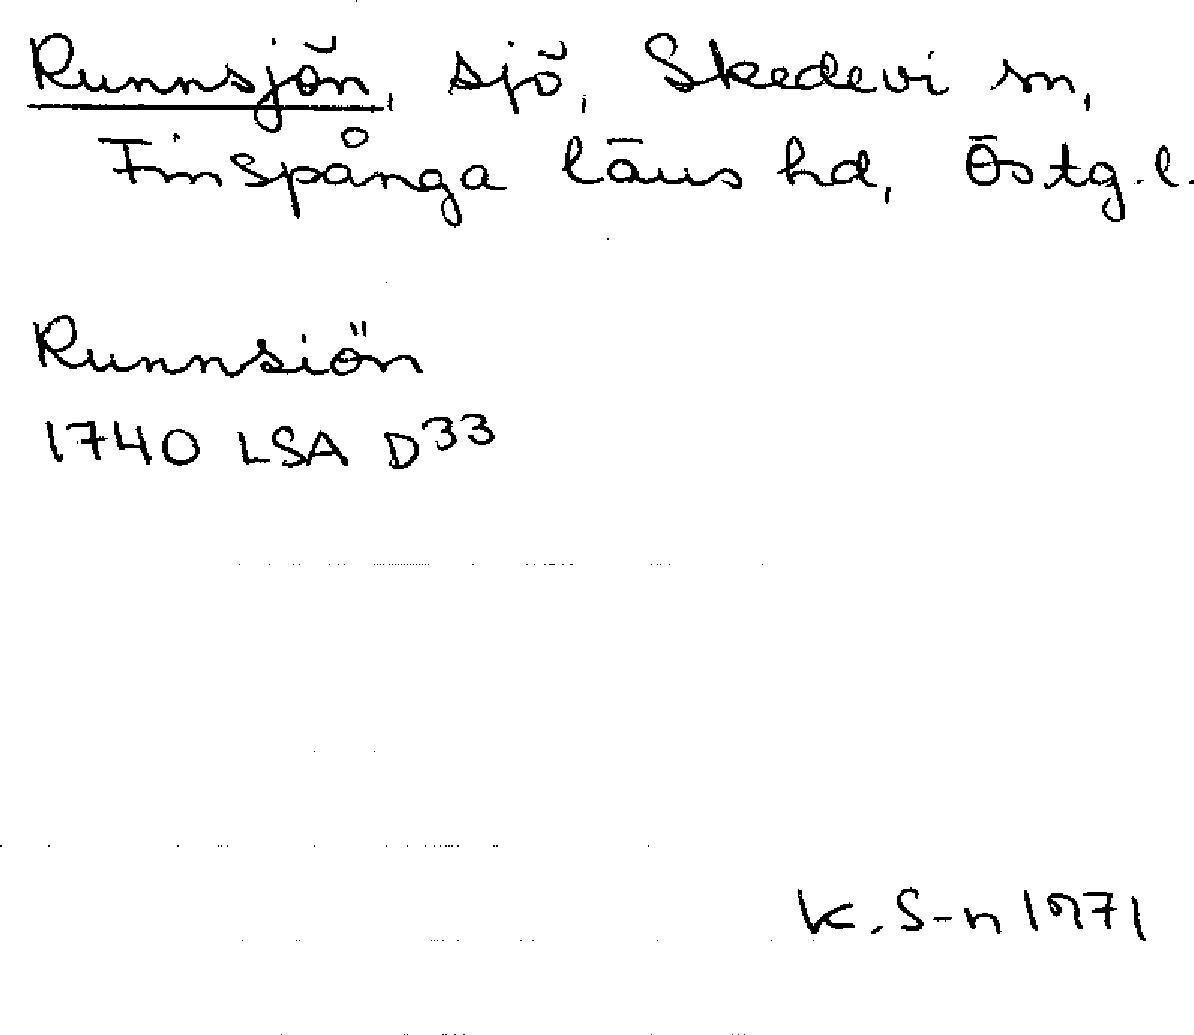 Runnsjön, sjö, Skedevi sn,
Finspånga läns hd, Östg.l.
Runnsiön
1740 LSA D33
K. S-n 1971